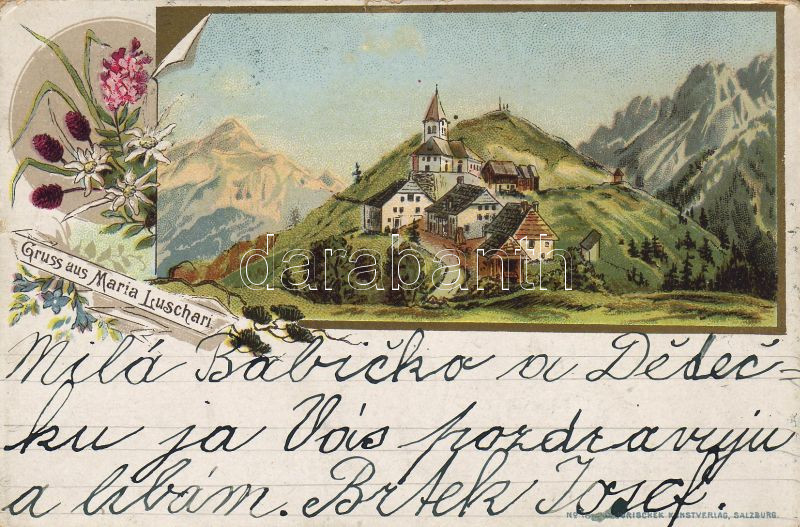 Gruss aus Maria Luschari
darabanth
Milá Babičko a Dědeč-
ku ja Vás pozdravuju
a líbám. Brtek Josef.
KUNSTVERLAG, SALZBURG.